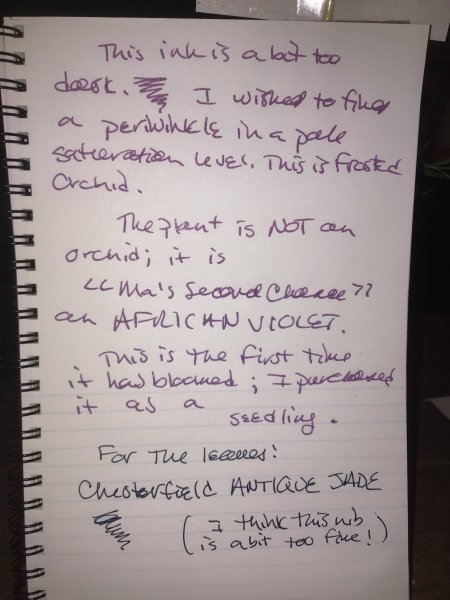 This ink is a bit too
dark. I wished to find
a periwinkle in a pale
saturation level. This is Frosted
Orchid.
The plant is NOT an
orchid; it is
<< Ma's Second Chance >>
an AFRICAN VIOLET.
This is the first time
it has bloomed; I purchased
it as a seedling.
For the leaves:
Chesterfield ANTIQUE JADE
(I think this nib
is a bit too fine!)